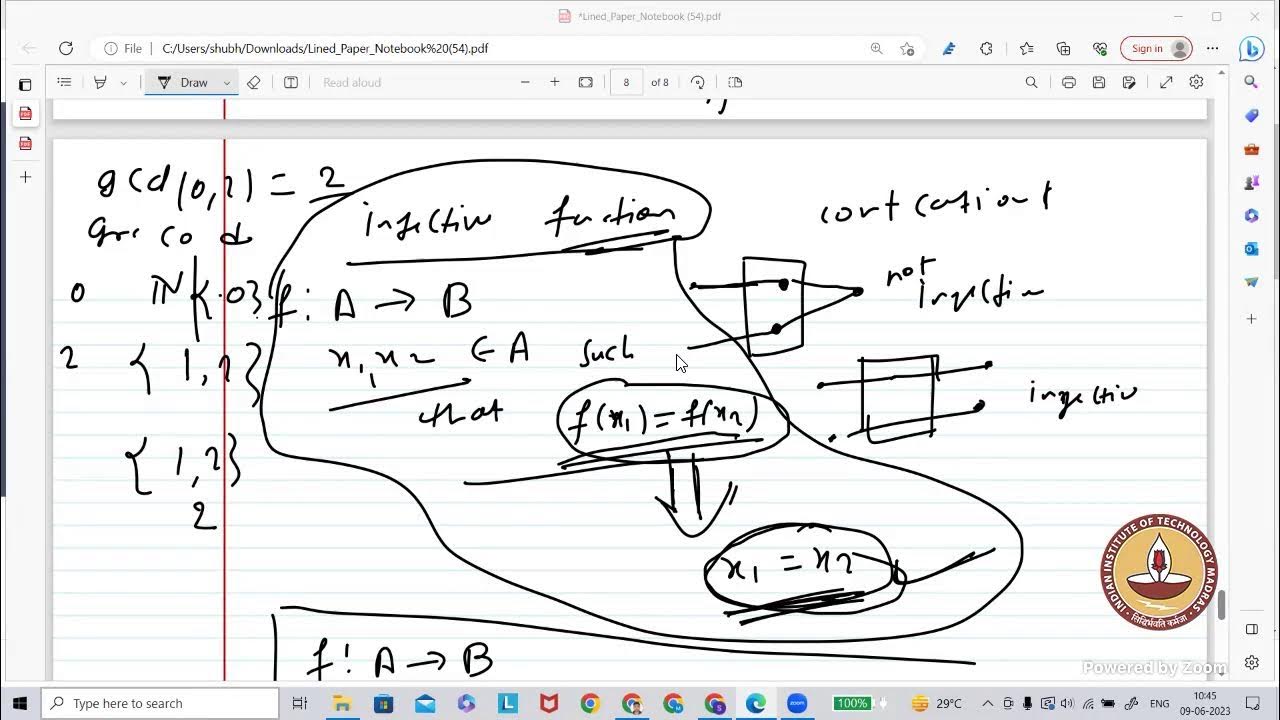 *Lined_Paper_Notebook (54).pdf
File C:/Users/shubh/Downloads/Lined_Paper_Notebook%20(54).pdf
Sign in
Draw
Read aloud
8 of 8
gcd(0,2) = 2
injective function
co d
0 IN \ {0}
f: A → B
x1, x2 ∈ A such
that f(x1) = f(x2)
⇓
x1 = x2
2 {1,2}
{1,2}
2
not
injective
f: A → B
INDIAN INSTITUTE OF TECHNOLOGY MADRAS
सिद्धिर्भवति कर्मजा
Powered by Zoom
Type here to search
100%
29°C
ENG
10:45
09-06-2023